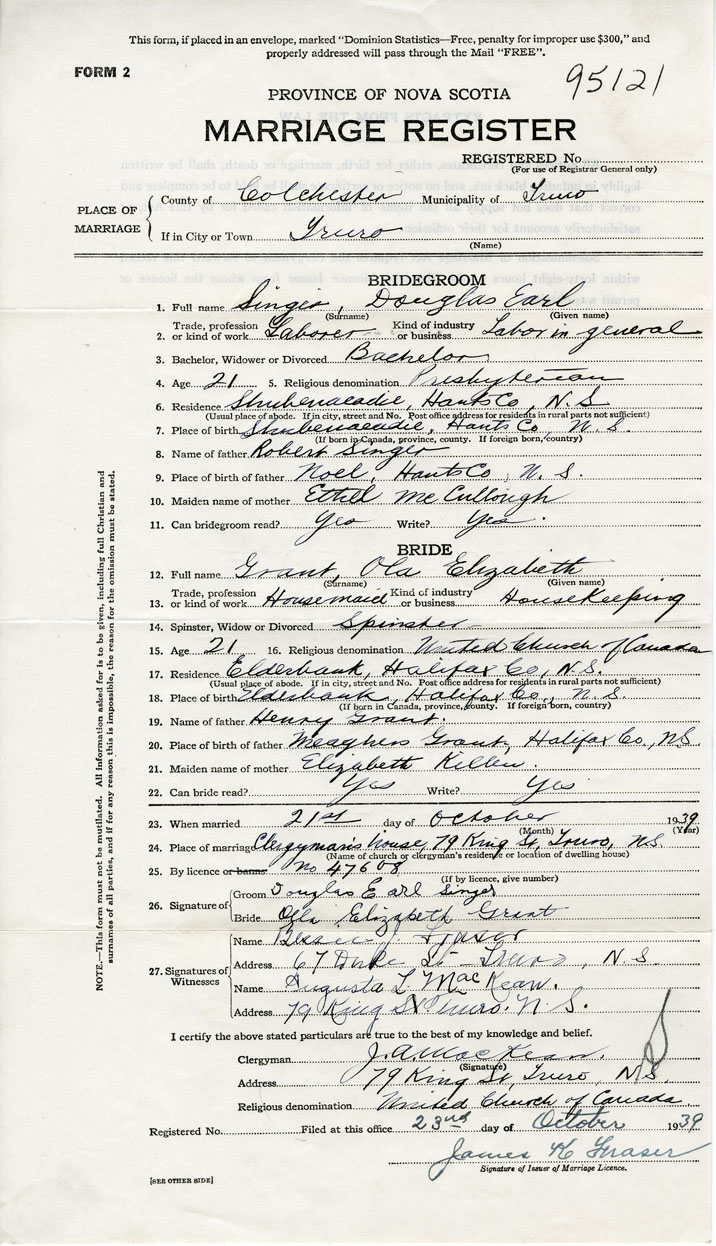 This form, if placed in an envelope, marked “Dominion Statistics—Free, penalty for improper use $300,” and
properly addressed will pass through the Mail “FREE”.
FORM 2
95121
PROVINCE OF NOVA SCOTIA
MARRIAGE REGISTER
REGISTERED No.
(For use of Registrar General only)
PLACE OF MARRIAGE
County of Colchester Municipality of Truro
If in City or Town Truro
(Name)
BRIDEGROOM
1. Full name Singer, Douglas Earl
(Surname) (Given name)
2. Trade, profession or kind of work Laborer Kind of industry or business Labor in general
3. Bachelor, Widower or Divorced Bachelor
4. Age 21 5. Religious denomination Presbyterian
6. Residence Shubenacadie, Hants Co, N.S
(Usual place of abode. If in city, street and No. Post office address for residents in rural parts not sufficient)
7. Place of birth Shubenacadie, Hants Co, N.S.
(If born in Canada, province, county. If foreign born, country)
8. Name of father Robert Singer
9. Place of birth of father Noel, Hants Co, N.S.
10. Maiden name of mother Ethel McCullough
11. Can bridegroom read? Yes Write? Yes.
BRIDE
12. Full name Grant, Ola Elizabeth
(Surname) (Given name)
13. Trade, profession or kind of work Housemaid Kind of industry or business Housekeeping
14. Spinster, Widow or Divorced Spinster
15. Age 21 16. Religious denomination United Church of Canada
17. Residence Elderbank, Halifax Co, N.S.
(Usual place of abode. If in city, street and No. Post office address for residents in rural parts not sufficient)
18. Place of birth Elderbank, Halifax Co., N.S.
(If born in Canada, province, county. If foreign born, country)
19. Name of father Henry Grant.
20. Place of birth of father Meaghers Grant, Halifax Co, N.S.
21. Maiden name of mother Elizabeth Killen.
22. Can bride read? Yes Write? Yes
23. When married 21st day of October 1939
(Month) (Year)
24. Place of marriage Clergyman's House, 79 King St, Truro, N.S.
(Name of church or clergyman's residence or location of dwelling house)
25. By licence or banns No 47658
(If by licence, give number)
26. Signature of
Groom Douglas Earl Singer
Bride Ola Elizabeth Grant
27. Signatures of Witnesses
Name Bessie J. Fraser
Address 67 Duke St Truro, N.S
Name Augusta L. MacKean.
Address 79 King St. Truro. N.S.
I certify the above stated particulars are true to the best of my knowledge and belief.
Clergyman J.A. MacKean.
(Signature)
Address 79 King St, Truro, N.S.
Religious denomination United Church of Canada
Registered No. Filed at this office 23rd day of October 1939
James K Fraser
Signature of Issuer of Marriage Licence.
[SEE OTHER SIDE]
NOTE.—This form must not be mutilated. All information asked for is to be given, including full Christian and
surnames of all parties, and if for any reason this is impossible, the reason for the omission must be stated.